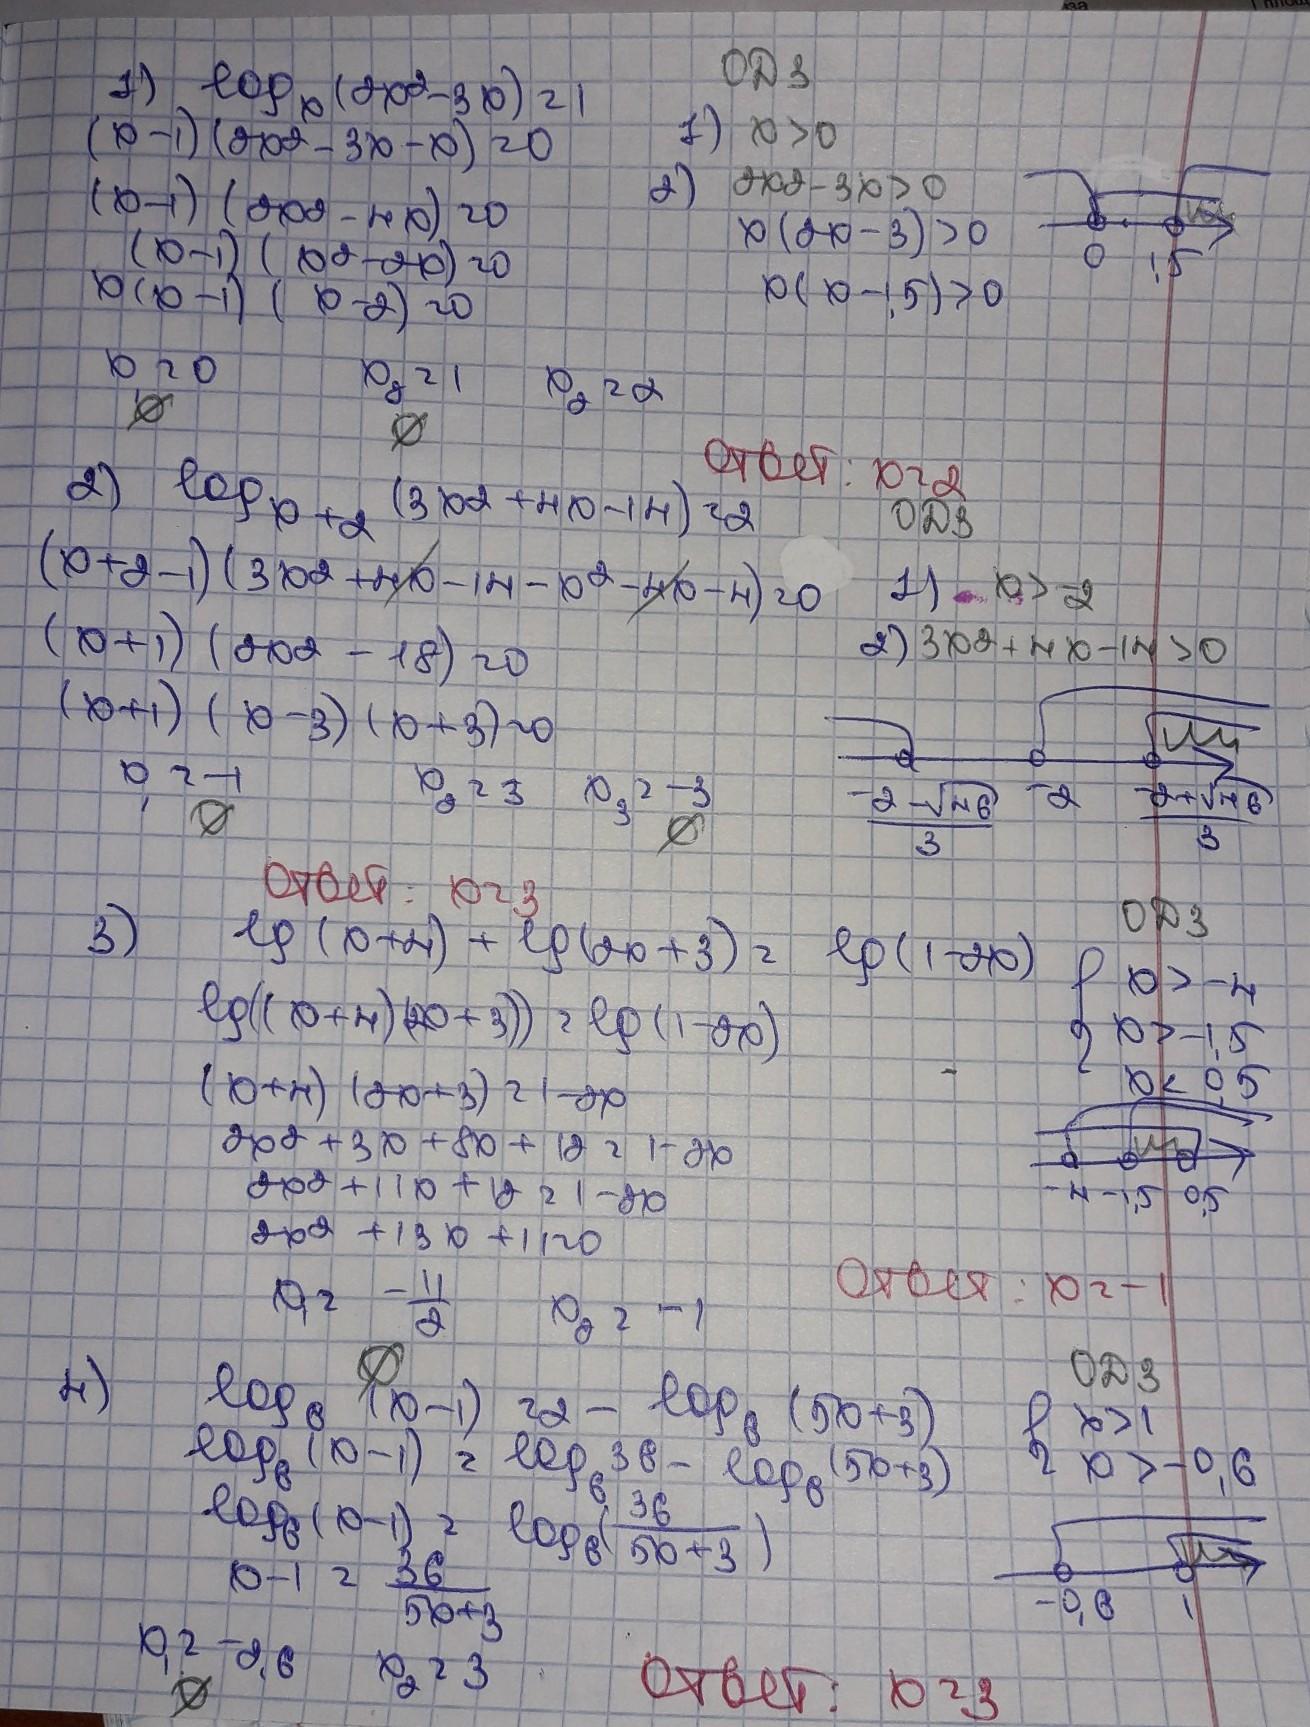 1) log_x (2x² - 3x) = 1
(x-1)(2x² - 3x - x) = 0
(x-1) (2x² - 4x) = 0
(x-1) (x² - 2x) = 0
x(x-1) (x-2) = 0
x = 0 ∅ x₂ = 1 ∅ x₂ = 2
ОДЗ
1) x > 0
2) 2x² - 3x > 0
x(2x - 3) > 0
x(x - 1,5) > 0
0 1,5
Ответ: x = 2
2) log_{x+2} (3x² + 4x - 14) = 2
(x+2-1)(3x² + 4x - 14 - x² - 4x - 4) = 0
(x+1) (2x² - 18) = 0
(x+1) (x-3) (x+3) = 0
x₁ = -1 ∅ x₂ = 3 x₃ = -3 ∅
ОДЗ
1) x > -2
2) 3x² + 4x - 14 > 0
(-2-√46)/3 -2 (-2+√46)/3
Ответ: x = 3
3) lg (x+4) + lg(2x+3) = lg(1-2x)
lg((x+4)(2x+3)) = lg(1-2x)
(x+4) (2x+3) = 1-2x
2x² + 3x + 8x + 12 = 1-2x
2x² + 11x + 12 = 1-2x
2x² + 13x + 11 = 0
x₁ = -11/2 ∅ x₂ = -1
ОДЗ
x > -4
x > -1,5
x < 0,5
-4 -1,5 0,5
Ответ: x = -1
4) log₆ (x-1) = 2 - log₆ (5x+3)
log₆ (x-1) = log₆ 36 - log₆ (5x+3)
log₆ (x-1) = log₆ (36/(5x+3))
x-1 = 36/(5x+3)
x₁ = -2,6 ∅ x₂ = 3
ОДЗ
x > 1
x > -0,6
-0,6 1
Ответ: x = 3